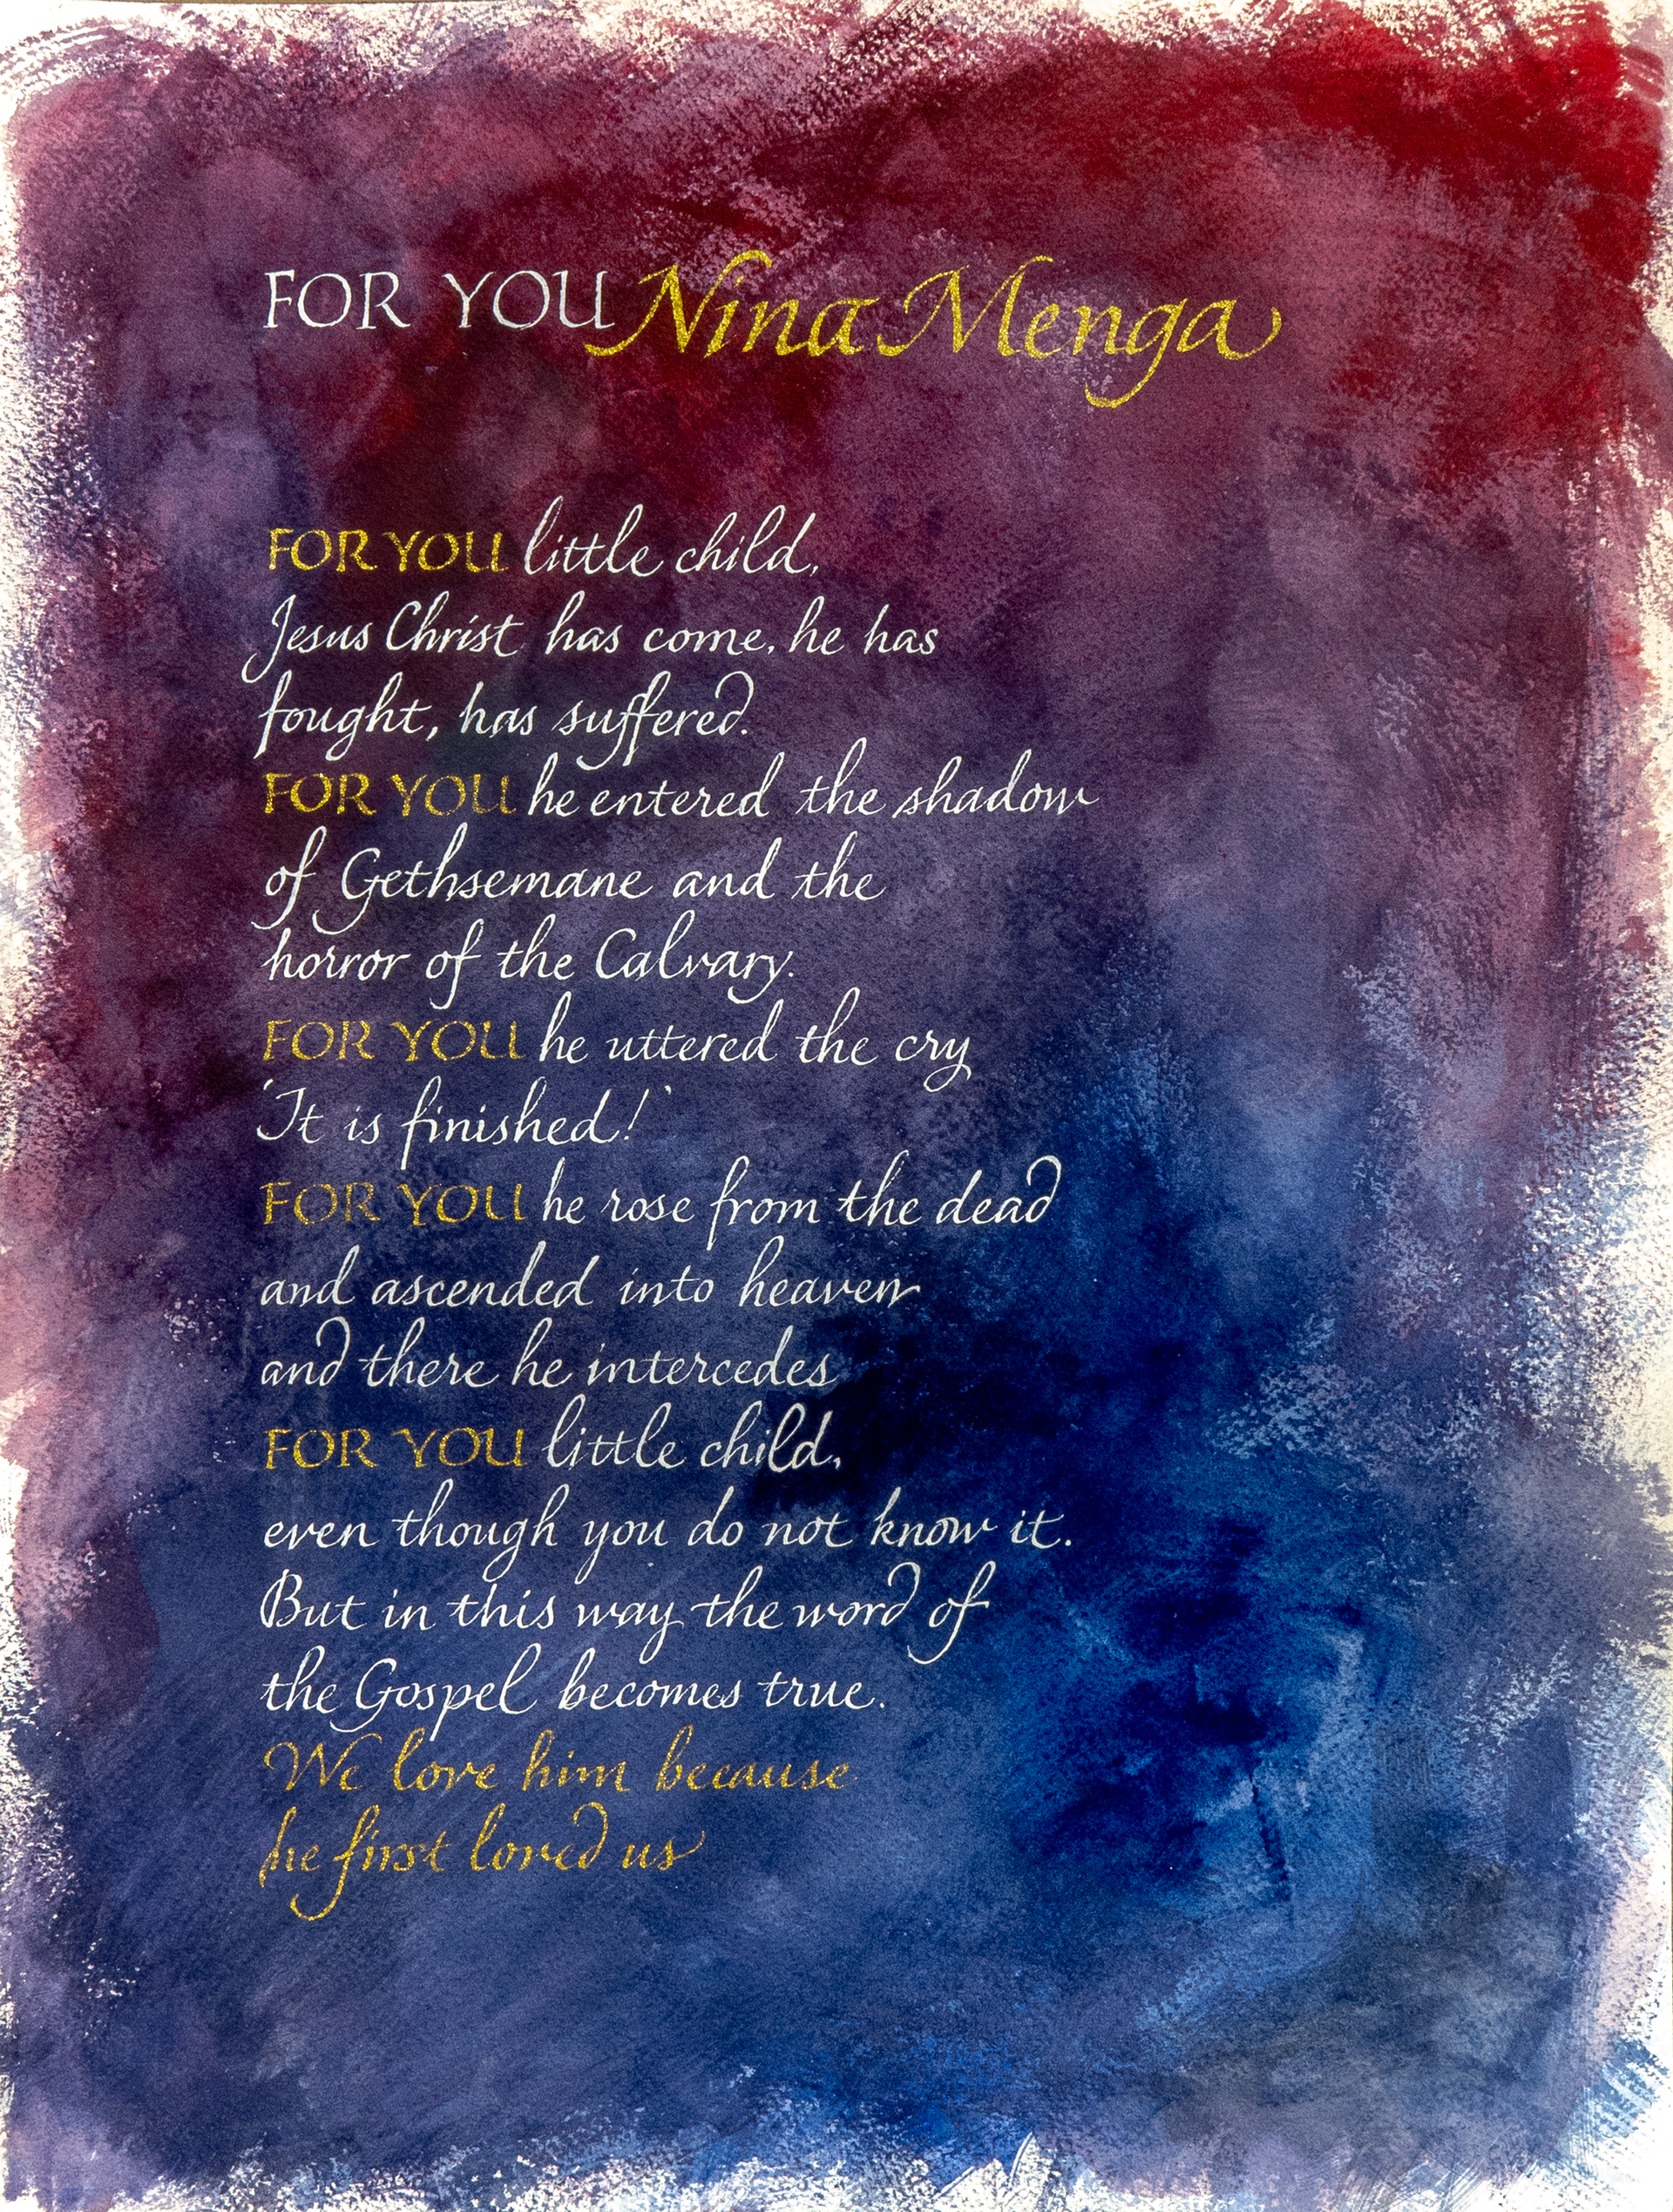 FOR YOU Nina Menga
FOR YOU little child,
Jesus Christ has come, he has
fought, has suffered.
FOR YOU he entered the shadow
of Gethsemane and the
horror of the Calvary.
FOR YOU he uttered the cry
'It is finished!'
FOR YOU he rose from the dead
and ascended into heaven
and there he intercedes
FOR YOU little child,
even though you do not know it.
But in this way the word of
the Gospel becomes true.
We love him because
he first loved us